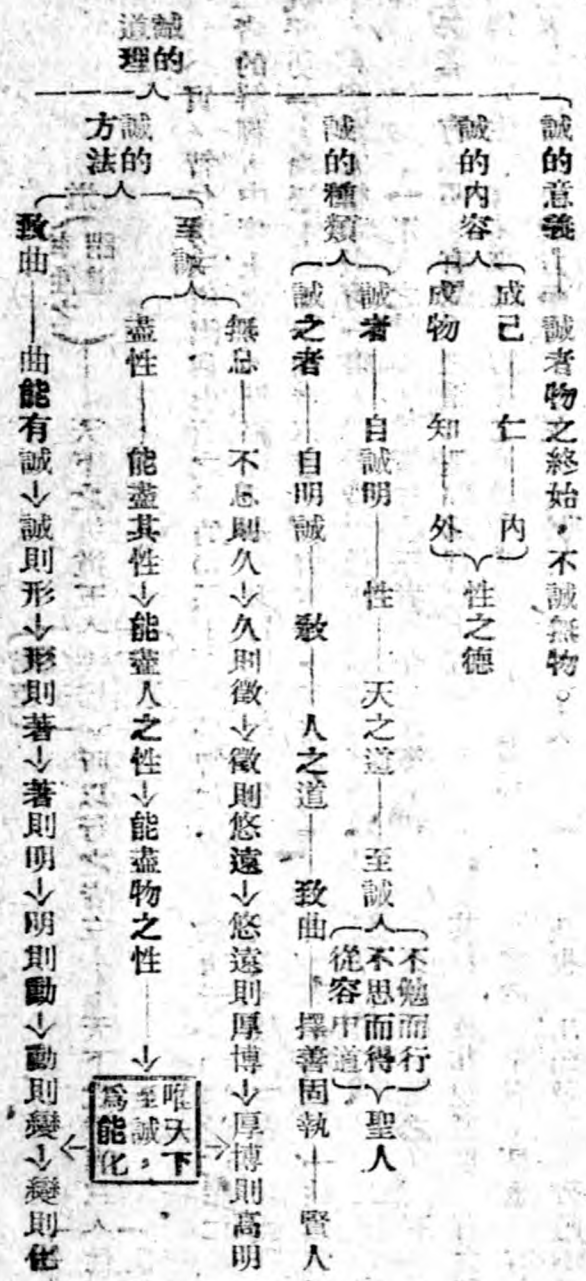 誠的道理
誠的意義——誠者物之終始,不誠無物。
誠的內容
成己——仁——內
成物——知——外
性之德
誠的種類
誠者——自誠明——性——天之道——至誠
不勉而行
不思而得
從容中道
聖人
誠之者——自明誠——敎——人之道——致曲——擇善固執——賢人
誠的方法
至誠
無息——不息則久→久則徵→徵則悠遠→悠遠則厚博→厚博則高明
盡性——能盡其性→能盡人之性→能盡物之性——→
唯天下至誠,爲能化
致曲——曲能有誠→誠則形→形則著→著則明→明則動→動則變→變則化